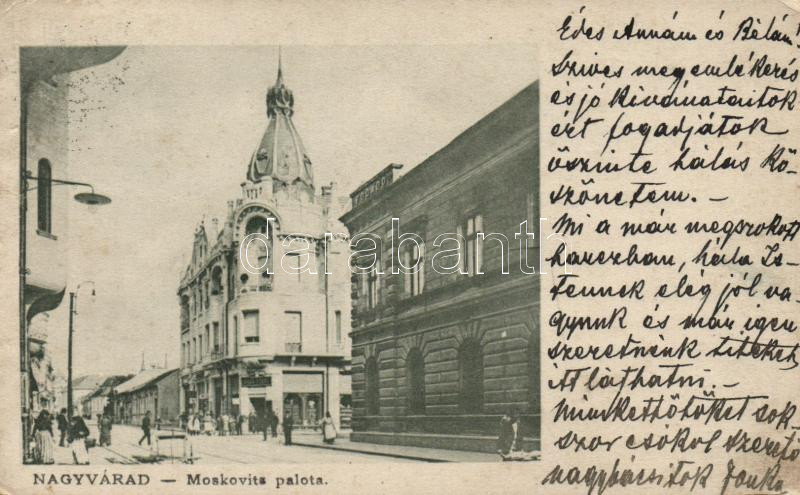 Édes Annám és Bélám!
Szives megemlékezés
és jó kivánataitok
ért fogadjátok
őszinte hálás kö-
szönetem. -
Mi a már megszokott
harczban, hála Is-
tennek elég jól va-
gyunk és már igen
szeretnénk titeket
itt láthatni. -
Mindkettőtöket sok-
szor csókol szerető
nagybácsitok Jonka
darabanth
NAGYVÁRAD — Moskovits palota.